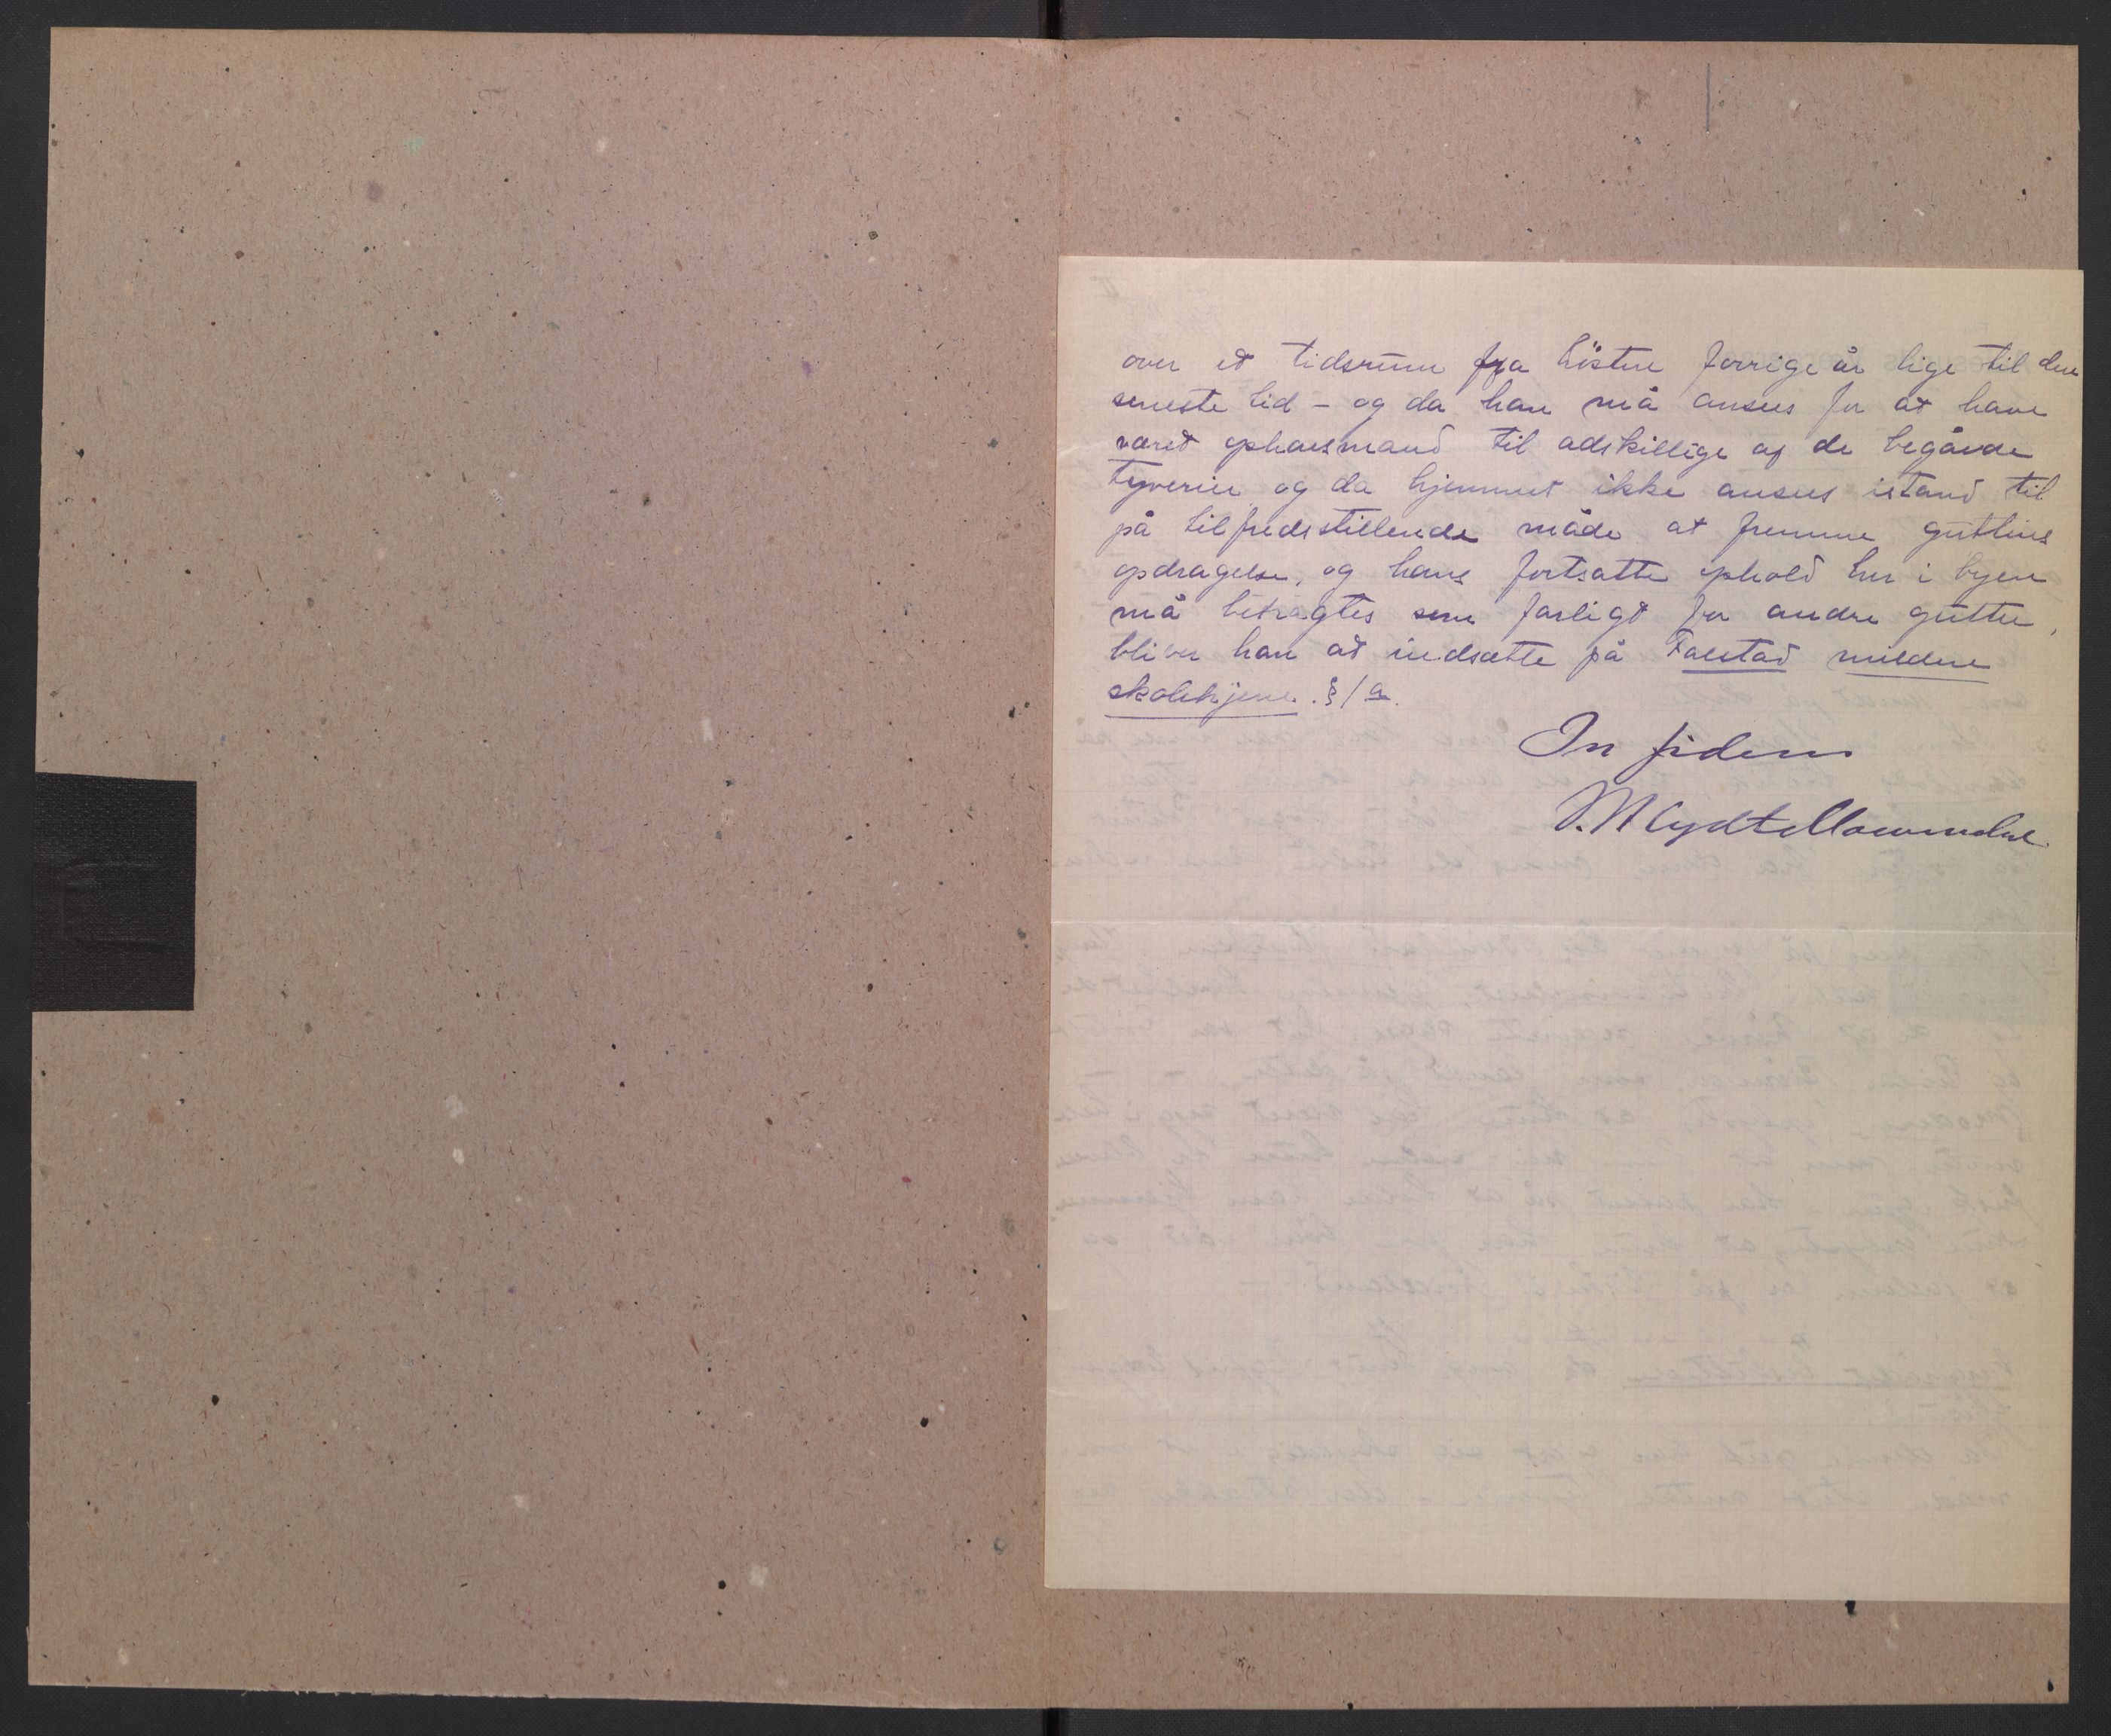 over et tidsrum fra hösten forrige år lige til den
seneste tid – og da han må ansees for at have
været ophavsmand til adskillige af de begåede
tyverier og da hjemmet ikke ansees istand til
på tilfredsstillende måde at fremme guttens
opdragelse, og hans fortsatte ophold her i byen
må betragtes som farligt for andre gutter,
bliver han at indsætte på Falstad mildere
skolehjem. § 1 a.
In fidem